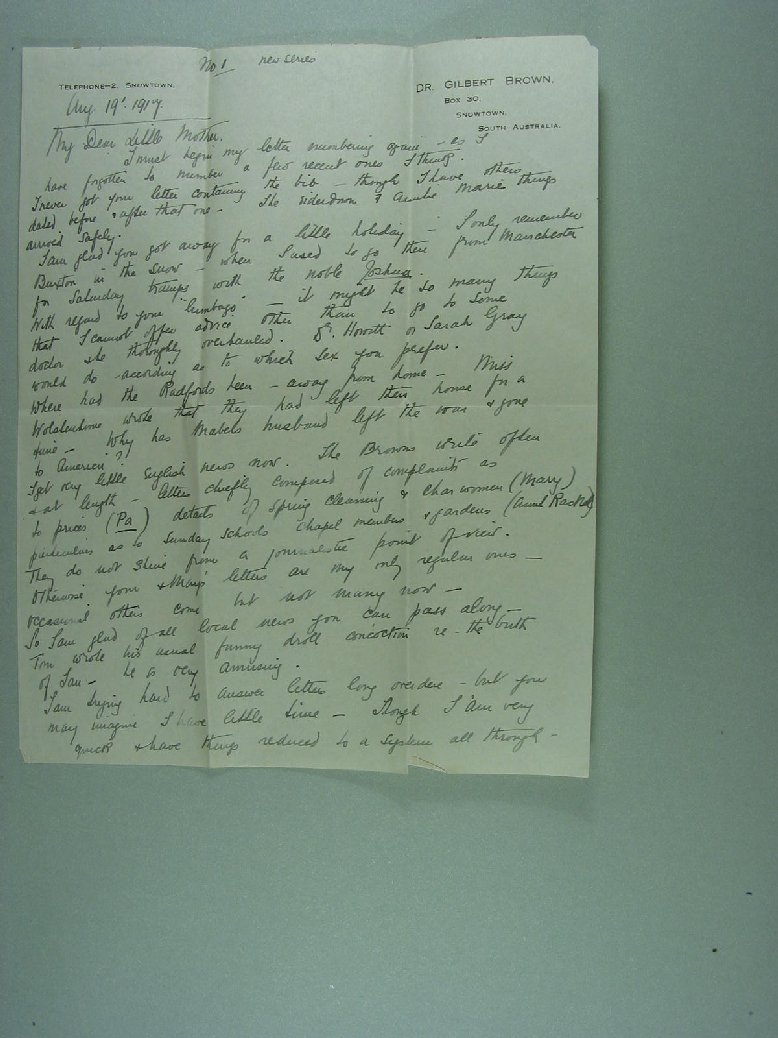 No 1 new series
TELEPHONE-2, SNOWTOWN.
DR. GILBERT BROWN,
BOX 30,
SNOWTOWN,
SOUTH AUSTRALIA.
Aug. 19th. 1917.
My Dear Little Mother.
I must begin my letter numbering again - as I
have forgotten to number a few recent ones I think.
I never got your letter containing the bib - though I have others
dated before & after that one. The eiderdown & Auntie Marie things
arrived safely.
I am glad you got away for a little holiday - I only remember
Buxton in the snow - when I used to go there from Manchester
for Saturday tramps with the noble Joshua.
With regard to your "lumbago" - it might be so many things
that I cannot offer advice other than to go to some
doctor & be thoroughly overhauled. Dr. Howitt or Sarah Gray
would do - according as to which sex you prefer.
Where had the Radfords been - away from home - Miss
Wolstenholme wrote that they had left their house for a
time - Why has Mabels husband left the war & gone
to America?
I get very little English news now. The Browns write often
& at length - letters chiefly composed of complaints as
to prices (Pa) details of spring cleaning & charwomen (Mary)
particulars as to Sunday Schools chapel members & gardens (Aunt Rachel)
They do not shine from a journalistic point of view.
Otherwise your & Marys letters are my only regular ones -
occasional others come but not many now -
So I am glad of all local news you can pass along -
Tom wrote his usual funny droll concoction re - the birth
of Ian - he is very amusing.
I am trying hard to answer letters long overdue - but you
may imagine I have little time - Though I am very
quick & have things reduced to a system all through -